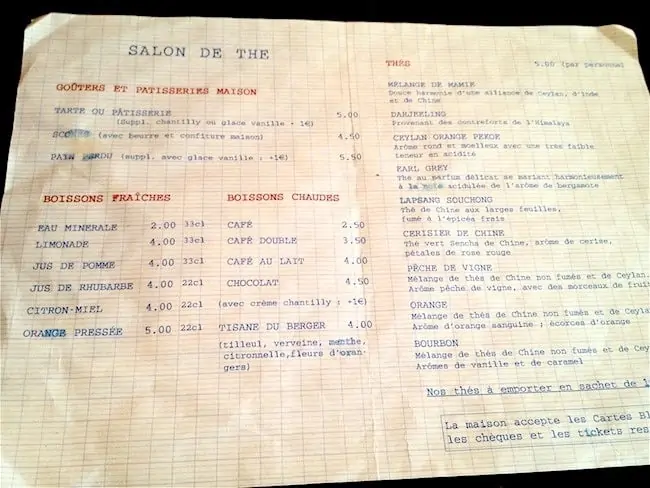 SALON DE THE
GOÛTERS ET PATISSERIES MAISON
TARTE OU PÂTISSERIE 5.00
(Suppl. chantilly ou glace vanille - 1€)
SCONES (avec beurre et confiture maison) 4.50
PAIN PERDU (suppl. avec glace vanille : +1€) 5.50
BOISSONS FRAÎCHES
EAU MINERALE 2.00 33cl
LIMONADE 4.00 33cl
JUS DE POMME 4.00 33cl
JUS DE RHUBARBE 4.00 22cl
CITRON-MIEL 4.00 22cl
ORANGE PRESSÉE 5.00 22cl
BOISSONS CHAUDES
CAFÉ 2.50
CAFÉ DOUBLE 3.50
CAFÉ AU LAIT 4.00
CHOCOLAT 4.50
(avec crème chantilly : +1€)
TISANE DU BERGER 4.00
(tilleul, verveine, menthe,
citronnelle,fleurs d'oran-
gers)
THÉS 5.00 (par personne
MÉLANGE DE MAMIE
Douce harmonie d'une alliance de Ceylan, d'inde
et de Chine
DARJEELING
Provenant des contreforts de l'Himalaya
CEYLAN ORANGE PEKOE
Arôme rond et moelleux avec une tres faible
teneur en acidité
EARL GREY
Thé au parfum délicat se mariant harmonieusement
à la note acidulée de l'arôme de bergamote
LAPSANG SOUCHONG
Thé de Chine aux larges feuilles,
fumé à l'épicéa frais
CERISIER DE CHINE
Thé vert Sencha de Chine, arôme de cerise,
pétales de rose rouge
PÊCHE DE VIGNE
Mélange de thés de Chine non fumés et de Ceylan.
Arôme pêche de vigne, avec des morceaux de fruit
ORANGE
Mélange de thés de Chine non fumés et de Ceyla
Arôme d'orange sanguine ; écorces d'orange
BOURBON
Mélange de thés de Chine non fumés et de Cey
Arômes de vanille et de caramel
Nos thés à emporter en sachet de 1
La maison accepte les Cartes Bl
les chèques et les tickets res